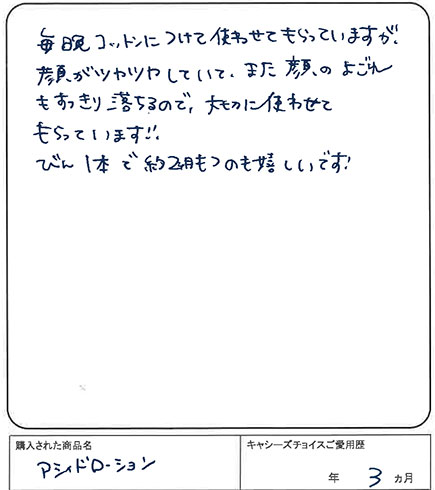 毎晩コットンにつけて使わせてもらっていますが、
顔がツヤツヤしていて、また顔のよごれ
もすっきり落ちるので、大切に使わせて
もらっています!!
びん1本で約2ヶ月もつのも嬉しいです!
購入された商品名
アシィドローション
キャシーズチョイスご愛用歴
年 3 ヵ月